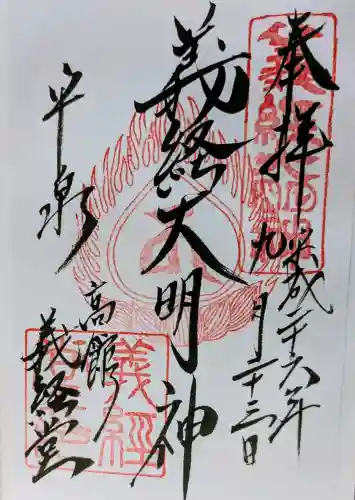 奉拝
平成二十六年
九月二十三日
義経大明神
平泉
高館
義経堂
義経